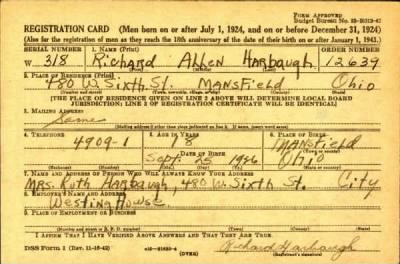 FORM APPROVED
Budget Bureau No. 33-R012-42
REGISTRATION CARD (Men born on or after July 1, 1924, and on or before December 31, 1924)
(Also for the registration of men as they reach the 18th anniversary of the date of their birth on or after January 1, 1943.)
SERIAL NUMBER 1. NAME (Print) ORDER NUMBER
W 318 Richard Allen Harbaugh 12639
(First) (Middle) (Last)
2. PLACE OF RESIDENCE (Print)
480 W. Sixth St. Mansfield Ohio
[THE PLACE OF RESIDENCE GIVEN ON LINE 2 ABOVE WILL DETERMINE LOCAL BOARD
JURISDICTION; LINE 2 OF REGISTRATION CERTIFICATE WILL BE IDENTICAL]
3. MAILING ADDRESS
Same
4. TELEPHONE 5. AGE IN YEARS 6. PLACE OF BIRTH
4909-1 18 Mansfield
DATE OF BIRTH
Sept. 25 1926 Ohio
(Exchange) (Number) (Mo.) (Day) (Yr.) (State or country)
7. NAME AND ADDRESS OF PERSON WHO WILL ALWAYS KNOW YOUR ADDRESS
Mrs. Ruth Harbaugh, 480 W. Sixth St. City
8. EMPLOYER'S NAME AND ADDRESS
Westing House
9. PLACE OF EMPLOYMENT OR BUSINESS
I AFFIRM THAT I HAVE VERIFIED ABOVE ANSWERS AND THAT THEY ARE TRUE.
DSS Form 1 (Rev. 11-16-42) (OVER) Richard Harbaugh